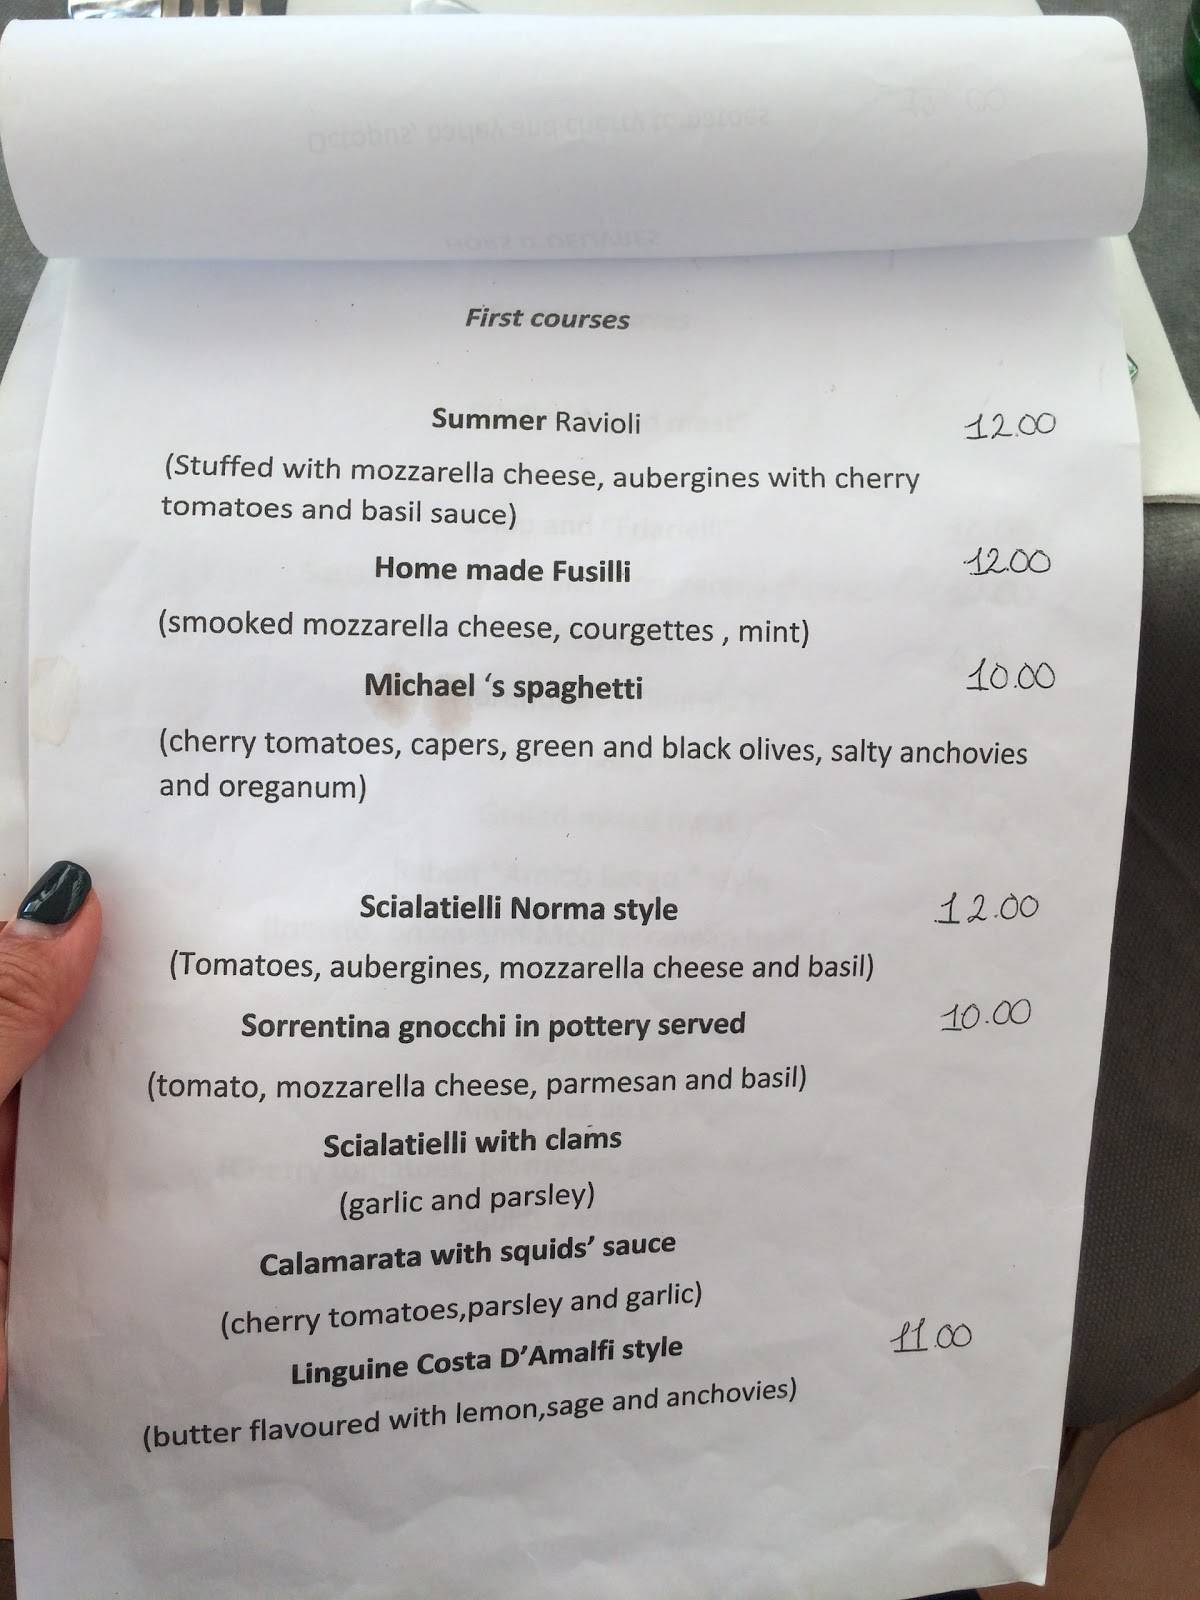 First courses
Summer Ravioli 12.00
(Stuffed with mozzarella cheese, aubergines with cherry
tomatoes and basil sauce)
Home made Fusilli 12.00
(smooked mozzarella cheese, courgettes , mint)
Michael ‘s spaghetti 10.00
(cherry tomatoes, capers, green and black olives, salty anchovies
and oreganum)
Scialatielli Norma style 12.00
(Tomatoes, aubergines, mozzarella cheese and basil)
Sorrentina gnocchi in pottery served 10.00
(tomato, mozzarella cheese, parmesan and basil)
Scialatielli with clams
(garlic and parsley)
Calamarata with squids’ sauce
(cherry tomatoes,parsley and garlic)
Linguine Costa D’Amalfi style 11.00
(butter flavoured with lemon,sage and anchovies)